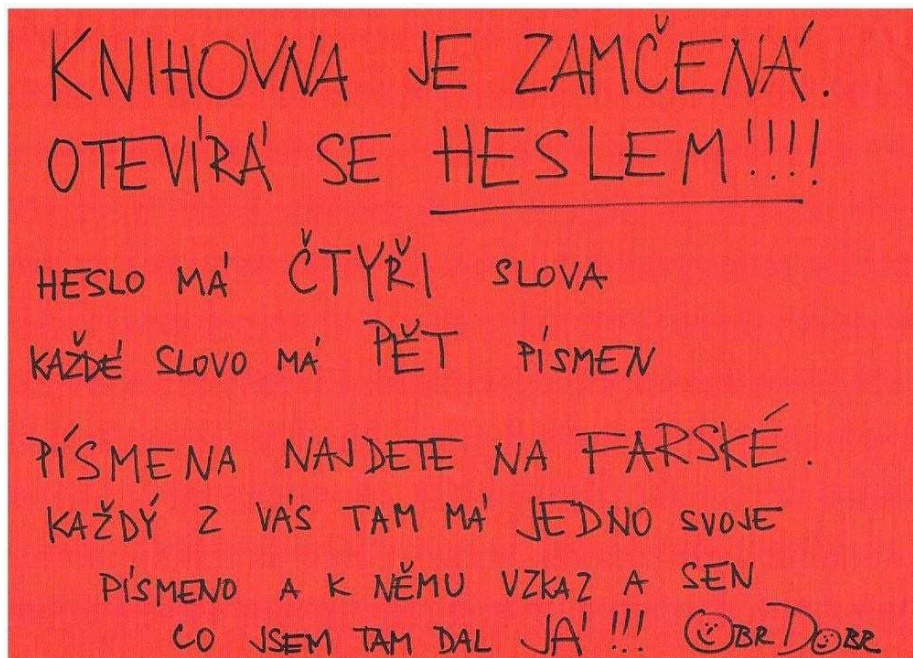 KNIHOVNA JE ZAMČENÁ.
OTEVÍRÁ SE HESLEM!!!!
HESLO MÁ ČTYŘI SLOVA
KAŽDÉ SLOVO MÁ PĚT PÍSMEN
PÍSMENA NAJDETE NA FARSKÉ.
KAŽDÝ Z VÁS TAM MÁ JEDNO SVOJE
PÍSMENO A K NĚMU VZKAZ A SEN
CO JSEM TAM DAL JÁ!!! OBR DOBR